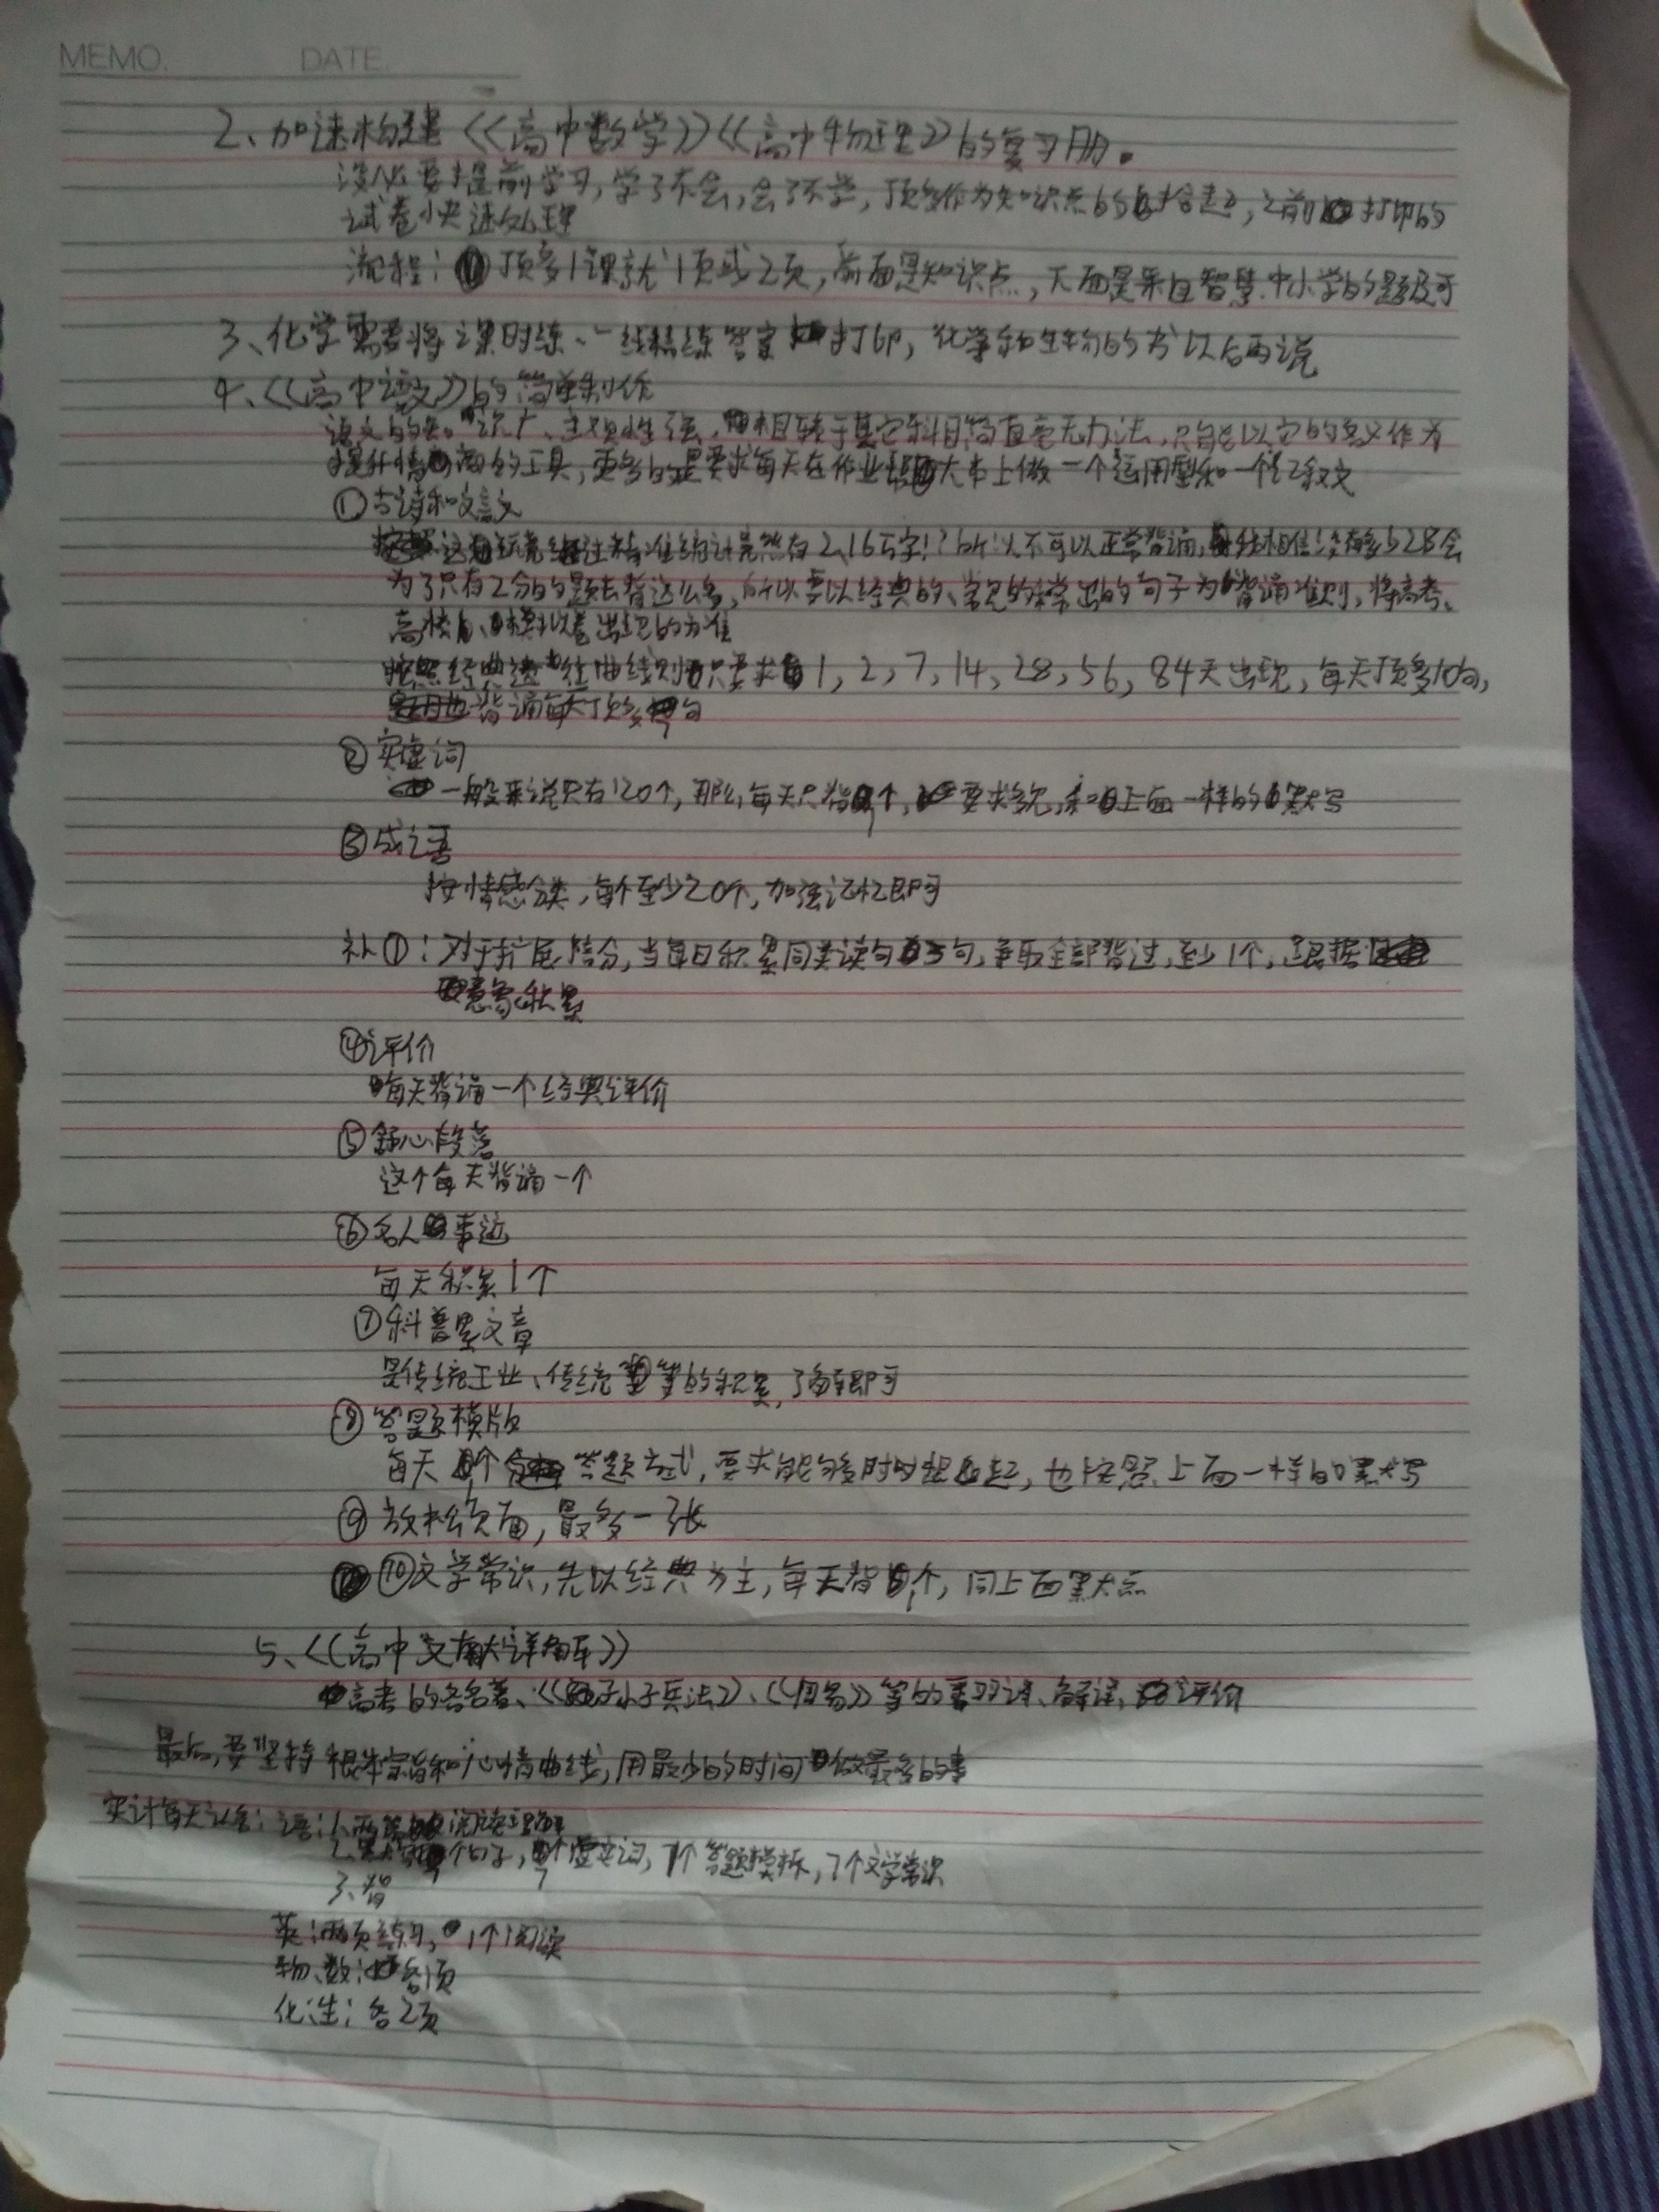 MEMO. DATE.
2、加速构建《《高中数学》》《《高中物理》》的复习册。
没必要提前学习,学了不会,会了不学,顶多作为知识点的拾起,之前打印的
试卷快速处理
流程:顶多1课就1页或2页,前面是知识点,下面是来自智慧中小学的题即可
3、化学需要将课时练、一线精练答案打印,化学和生物的书以后再说
4、《《高中语文》》的简单制作
语文的知识广、主观性强,相较于其它科目简直毫无办法,只能以它的名义作为
提升情商的工具,更多的是要求每天在作业大本上做一个运用型和一个记叙文
①古诗和文言文
这玩意经过精准统计竟然有2.16万字!?所以不可以正常背诵,相信没有多少2B会
为了只有2分的题去背这么多,所以要以经典的、常见的、常出的句子为背诵准则,将高考、
高模拟卷出现的为准
按照经典遗忘曲线则只要求1,2,7,14,28,56,84天出现,每天顶多10句,
背诵每天顶多句
②实虚词
一般来说只有120个,那么每天只背个,要求多见,和上面一样的默写
③成语
按情感分类,每个至少20个,加强记忆即可
补①:对于扩展部分,当每日积累同类读句3句,争取全部背过,至少1个,是根据
意象积累
④评价
每天背诵一个经典评价
⑤舒心段落
这个每天背诵一个
⑥名人事迹
每天积累1个
⑦科普类文章
是传统工业、传统等的积累,了解即可
⑧答题模版
每天个答题方式,要求能够时时想起,也按照上面一样的默写
⑨放松页面,最多一张
⑩文学常识,先以经典为主,每天背个,同上面默点
5、《《高中文献详解》》
高考的各名著、《《孙子兵法》》、《《周易》》等的翻译、解读、评价
最后,要坚持根本宗旨和心情曲线,用最少的时间做最多的事
实计每天任务:语:1、两篇阅读理解
2、默写个句子,7个虚实词,1个答题模板,7个文学常识
3、背
英:两页练习,1个阅读
物、数:各1页
化、生:各2页